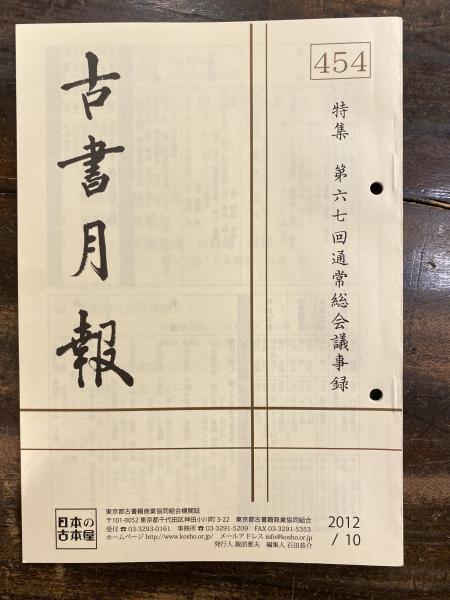 古書月報
454
特集 第六七回通常総会議事録
日本の
古本屋
東京都古書籍商業協同組合機関誌
〒101-0052 東京都千代田区神田小川町 3-22 東京都古書籍商業協同組合
受付 ☎ 03-3293-0161 事務所 ☎ 03-3291-5209 FAX 03-3291-5353
ホームページ http://www.kosho.or.jp/ メールアドレス info@kosho.or.jp
発行人 諏訪雅夫 編集人 石田恭介
2012
/ 10